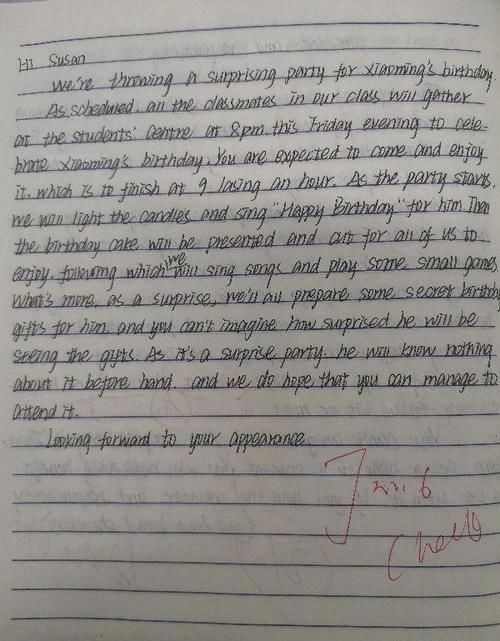 Hi Susan
We're throwing a surprising party for Xiaoming's birthday.
As scheduled, all the classmates in our class will gather
at the students' centre at 8pm this Friday evening to cele-
brate Xiaoming's birthday. You are expected to come and enjoy
it, which is to finish at 9 lasing an hour. As the party starts,
we will light the candles and sing "Happy Birthday" for him. Then
the birthday cake will be presented and cut for all of us to
enjoy, following which we will sing songs and play some small games.
What's more, as a surprise, we'll all prepare some secret birthday
gifts for him, and you can't imagine how surprised he will be
seeing the gifts. As it's a surprise party, he will know nothing
about it before hand, and we do hope that you can manage to
attend it.
Looking forward to your appearance.